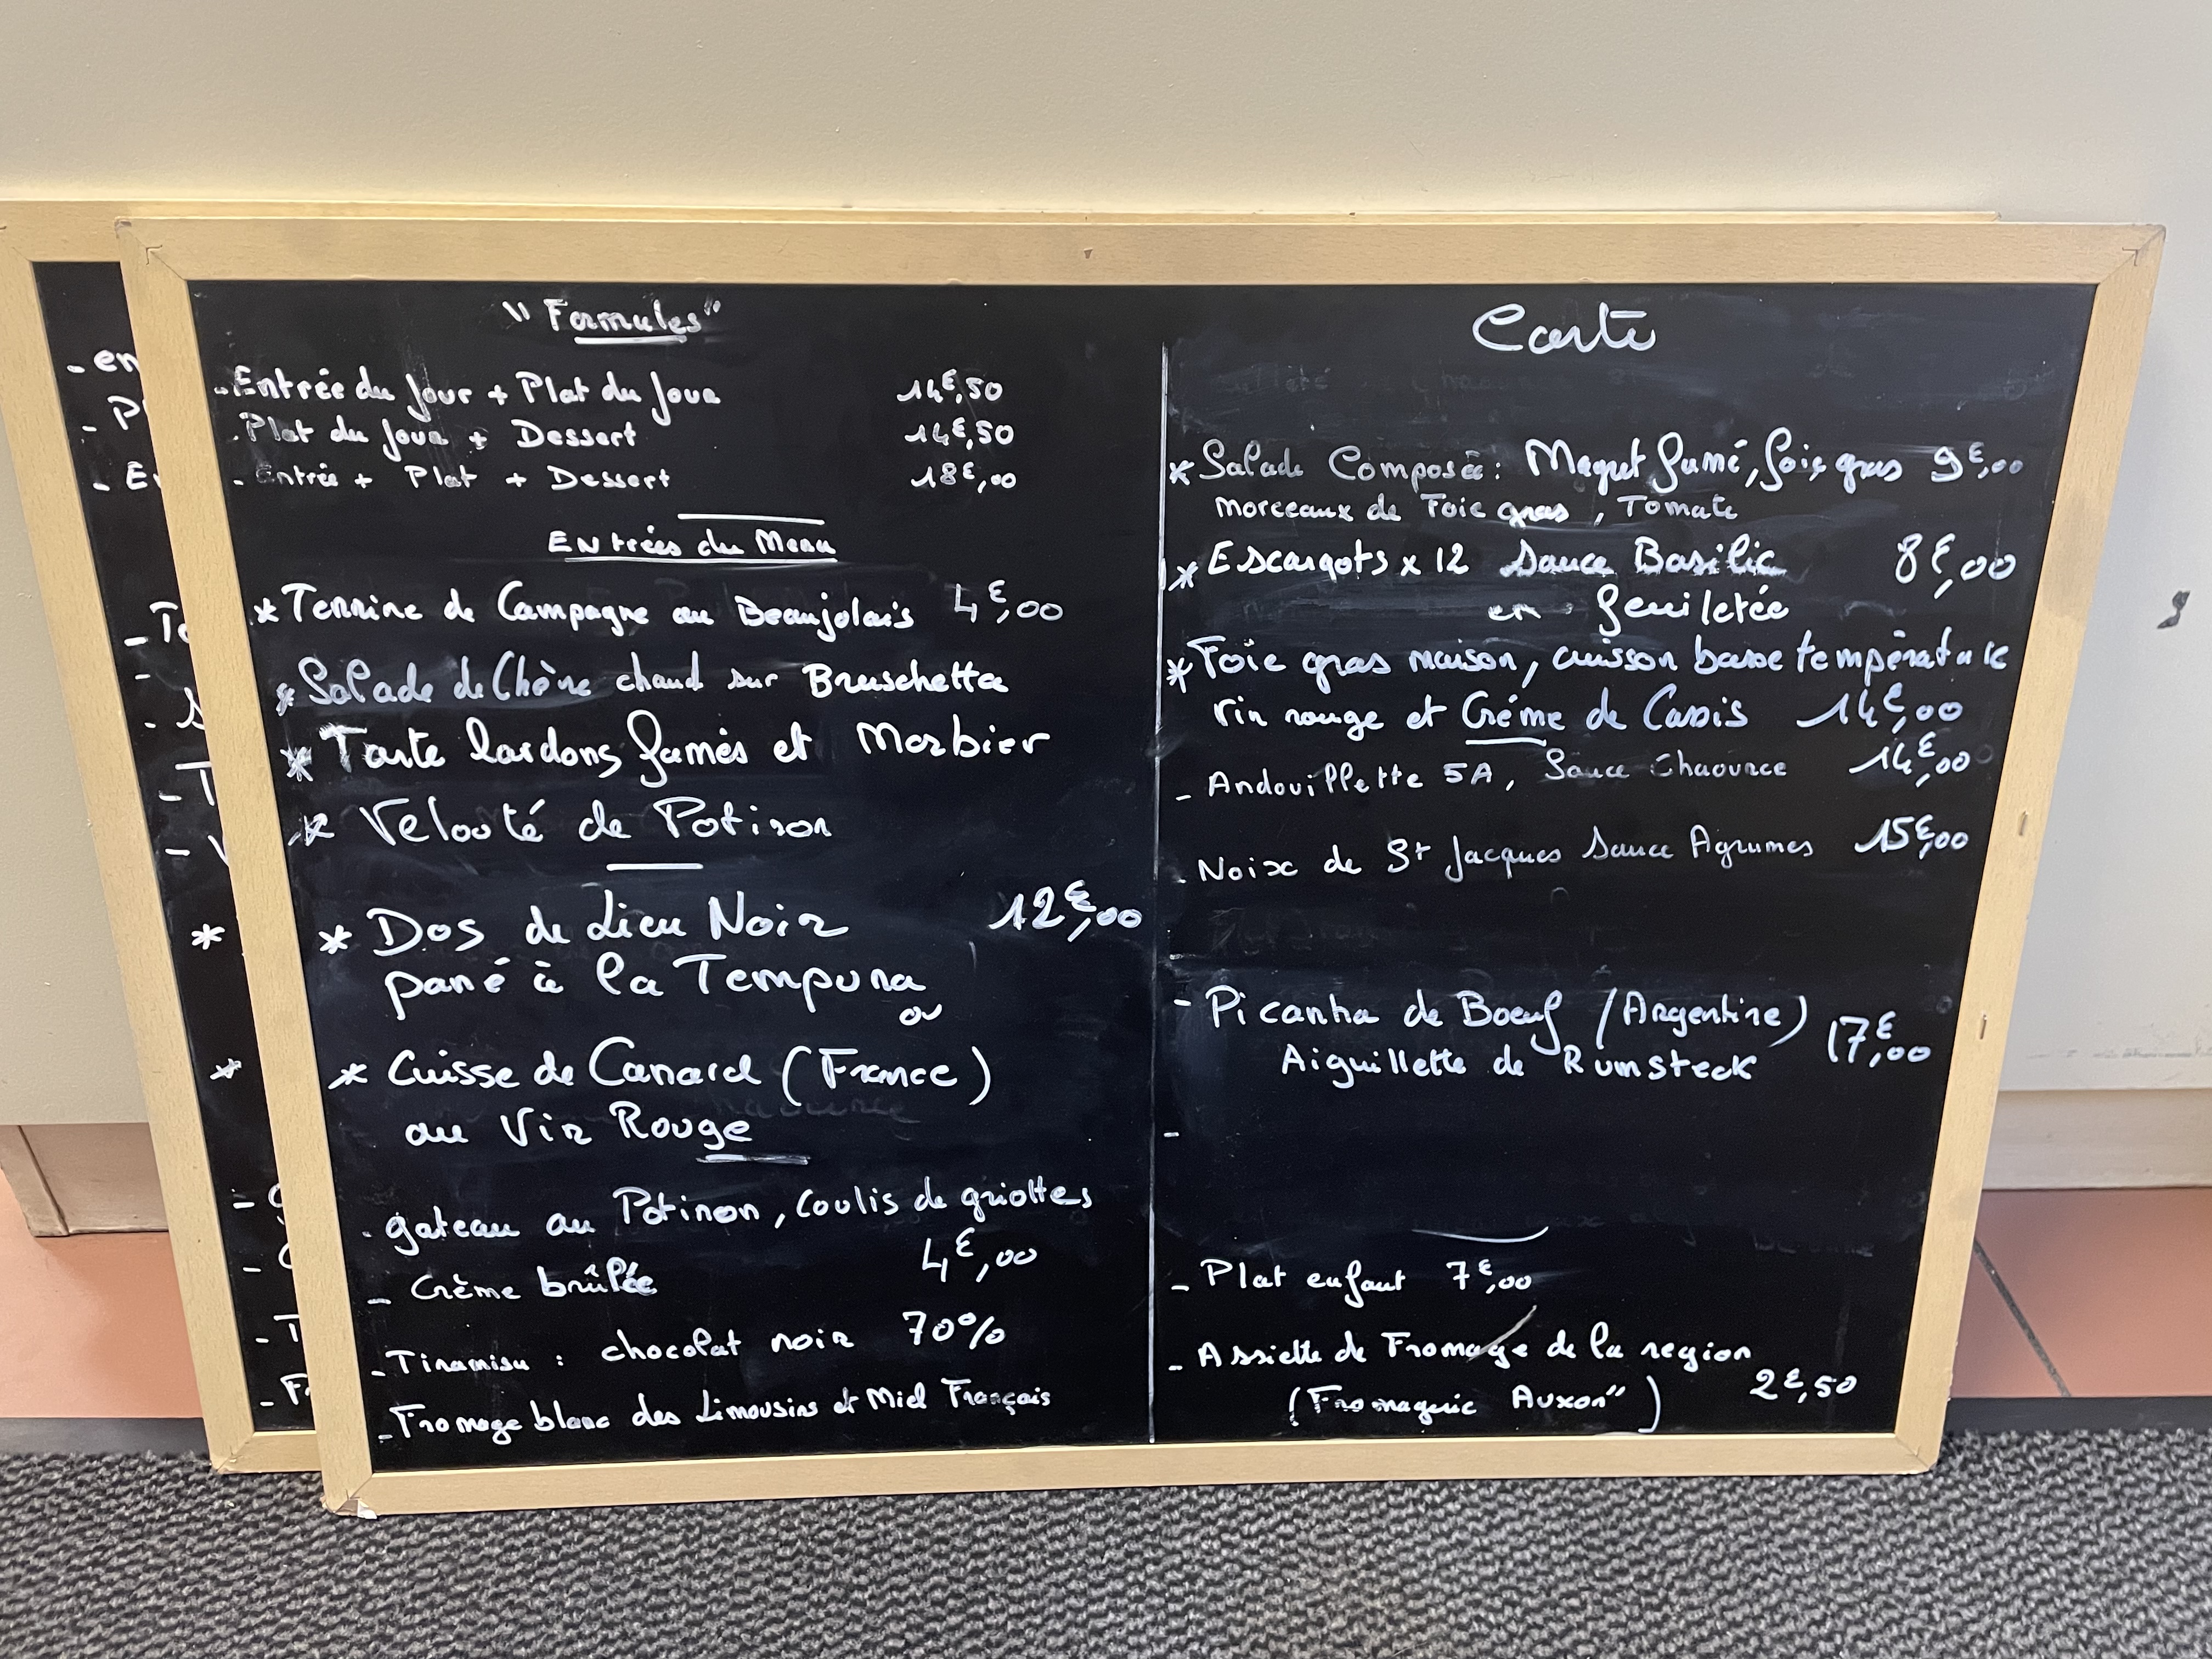 "Formules"
- Entrée du Jour + Plat du Jour 14€,50
- Plat du Jour + Dessert 14€,50
- Entrée + Plat + Dessert 18€,00
Entrées du Menu
* Terrine de Campagne au Beaujolais 4€,00
* Salade de Chèvre chaud sur Bruschetta
* Tarte lardons fumés et Morbier
* Velouté de Potiron
* Dos de Lieu Noir 12€,00
pané à la Tempura
ou
* Cuisse de Canard (France)
au Vin Rouge
- gateau au Potiron, Coulis de griottes
4€,00
- Crème brûlée
- Tiramisu : chocolat noir 70%
- Fromage blanc des Limousins et Miel Français
Carte
* Salade Composée : Magret fumé, foie gras 9€,00
morceaux de Foie gras, Tomate
* Escargots x 12 Sauce Basilic 8€,00
en feuilletée
* Foie gras maison, cuisson basse température
vin rouge et Crème de Cassis 14€,00
- Andouillette 5A, Sauce Chaource 14€,00
- Noix de St Jacques Sauce Agrumes 15€,00
- Picanha de Boeuf (Argentine) 17€,00
Aiguillette de Rumsteck
-
- Plat enfant 7€,00
- Assiette de Fromage de la region
(Fromagerie Auxon") 2€,50
- en
- Pl
- En
- Te
-
- S
- T
- V
*
*
- g
- C
- T
- Fr